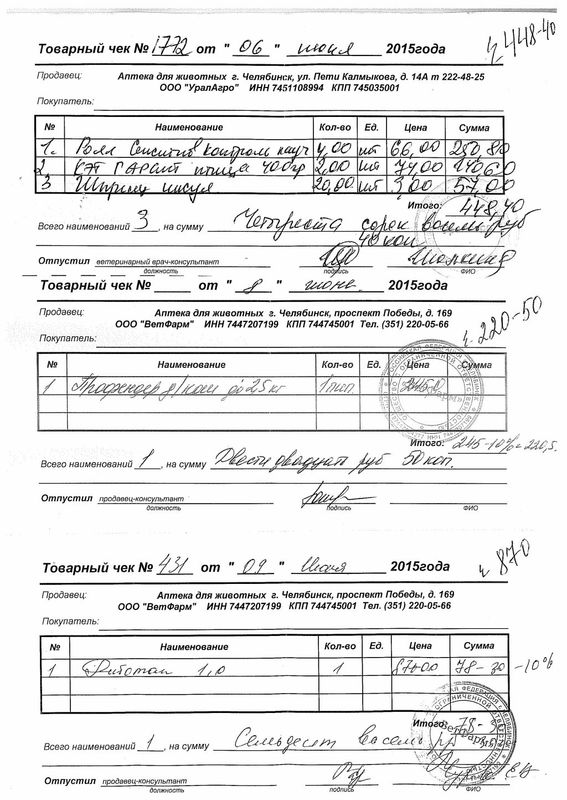 ч 448-40
Товарный чек № 1772 от " 06 " июля 2015года
Продавец: Аптека для животных г. Челябинск, ул. Пети Калмыкова, д. 14А т 222-48-25
ООО "УралАгро" ИНН 7451108994 КПП 745035001
Покупатель:
№ Наименование Кол-во Ед. Цена Сумма
1. Роял Сенситив контроль пауч 4,00 шт 66,00 250,80
2 КЭТ ГАРАНТ птица 400гр 2,00 шт 74,00 140,60
3 Шприц инсул 20,00 шт 3,00 57,00
Итого: 448,40
Всего наименований 3, на сумму Четыреста сорок восемь руб
40 коп.
Отпустил ветеринарный врач-консультант
должность подпись ФИО
Товарный чек № от " 8 " 2015года
ч. 220-50
Продавец: Аптека для животных г. Челябинск, проспект Победы, д. 169
ООО "ВетФарм" ИНН 7447207199 КПП 744745001 Тел. (351) 220-05-66
Покупатель:
№ Наименование Кол-во Ед. Цена Сумма
1 Профендер д/кош до 2,5 кг 1 пип 245
Итого: 245-10%=220,5.
Всего наименований 1, на сумму Двести двадцать руб 50 коп.
Отпустил продавец-консультант
должность подпись ФИО
ч 870
Товарный чек № 431 от " 09 " Июля 2015года
Продавец: Аптека для животных г. Челябинск, проспект Победы, д. 169
ООО "ВетФарм" ИНН 7447207199 КПП 744745001 Тел. (351) 220-05-66
Покупатель:
№ Наименование Кол-во Ед. Цена Сумма
1 1,0 1 87-00 78-30 -10%
Итого: 78-30
Всего наименований 1, на сумму Семьдесят восемь
Отпустил продавец-консультант
должность подпись ФИО